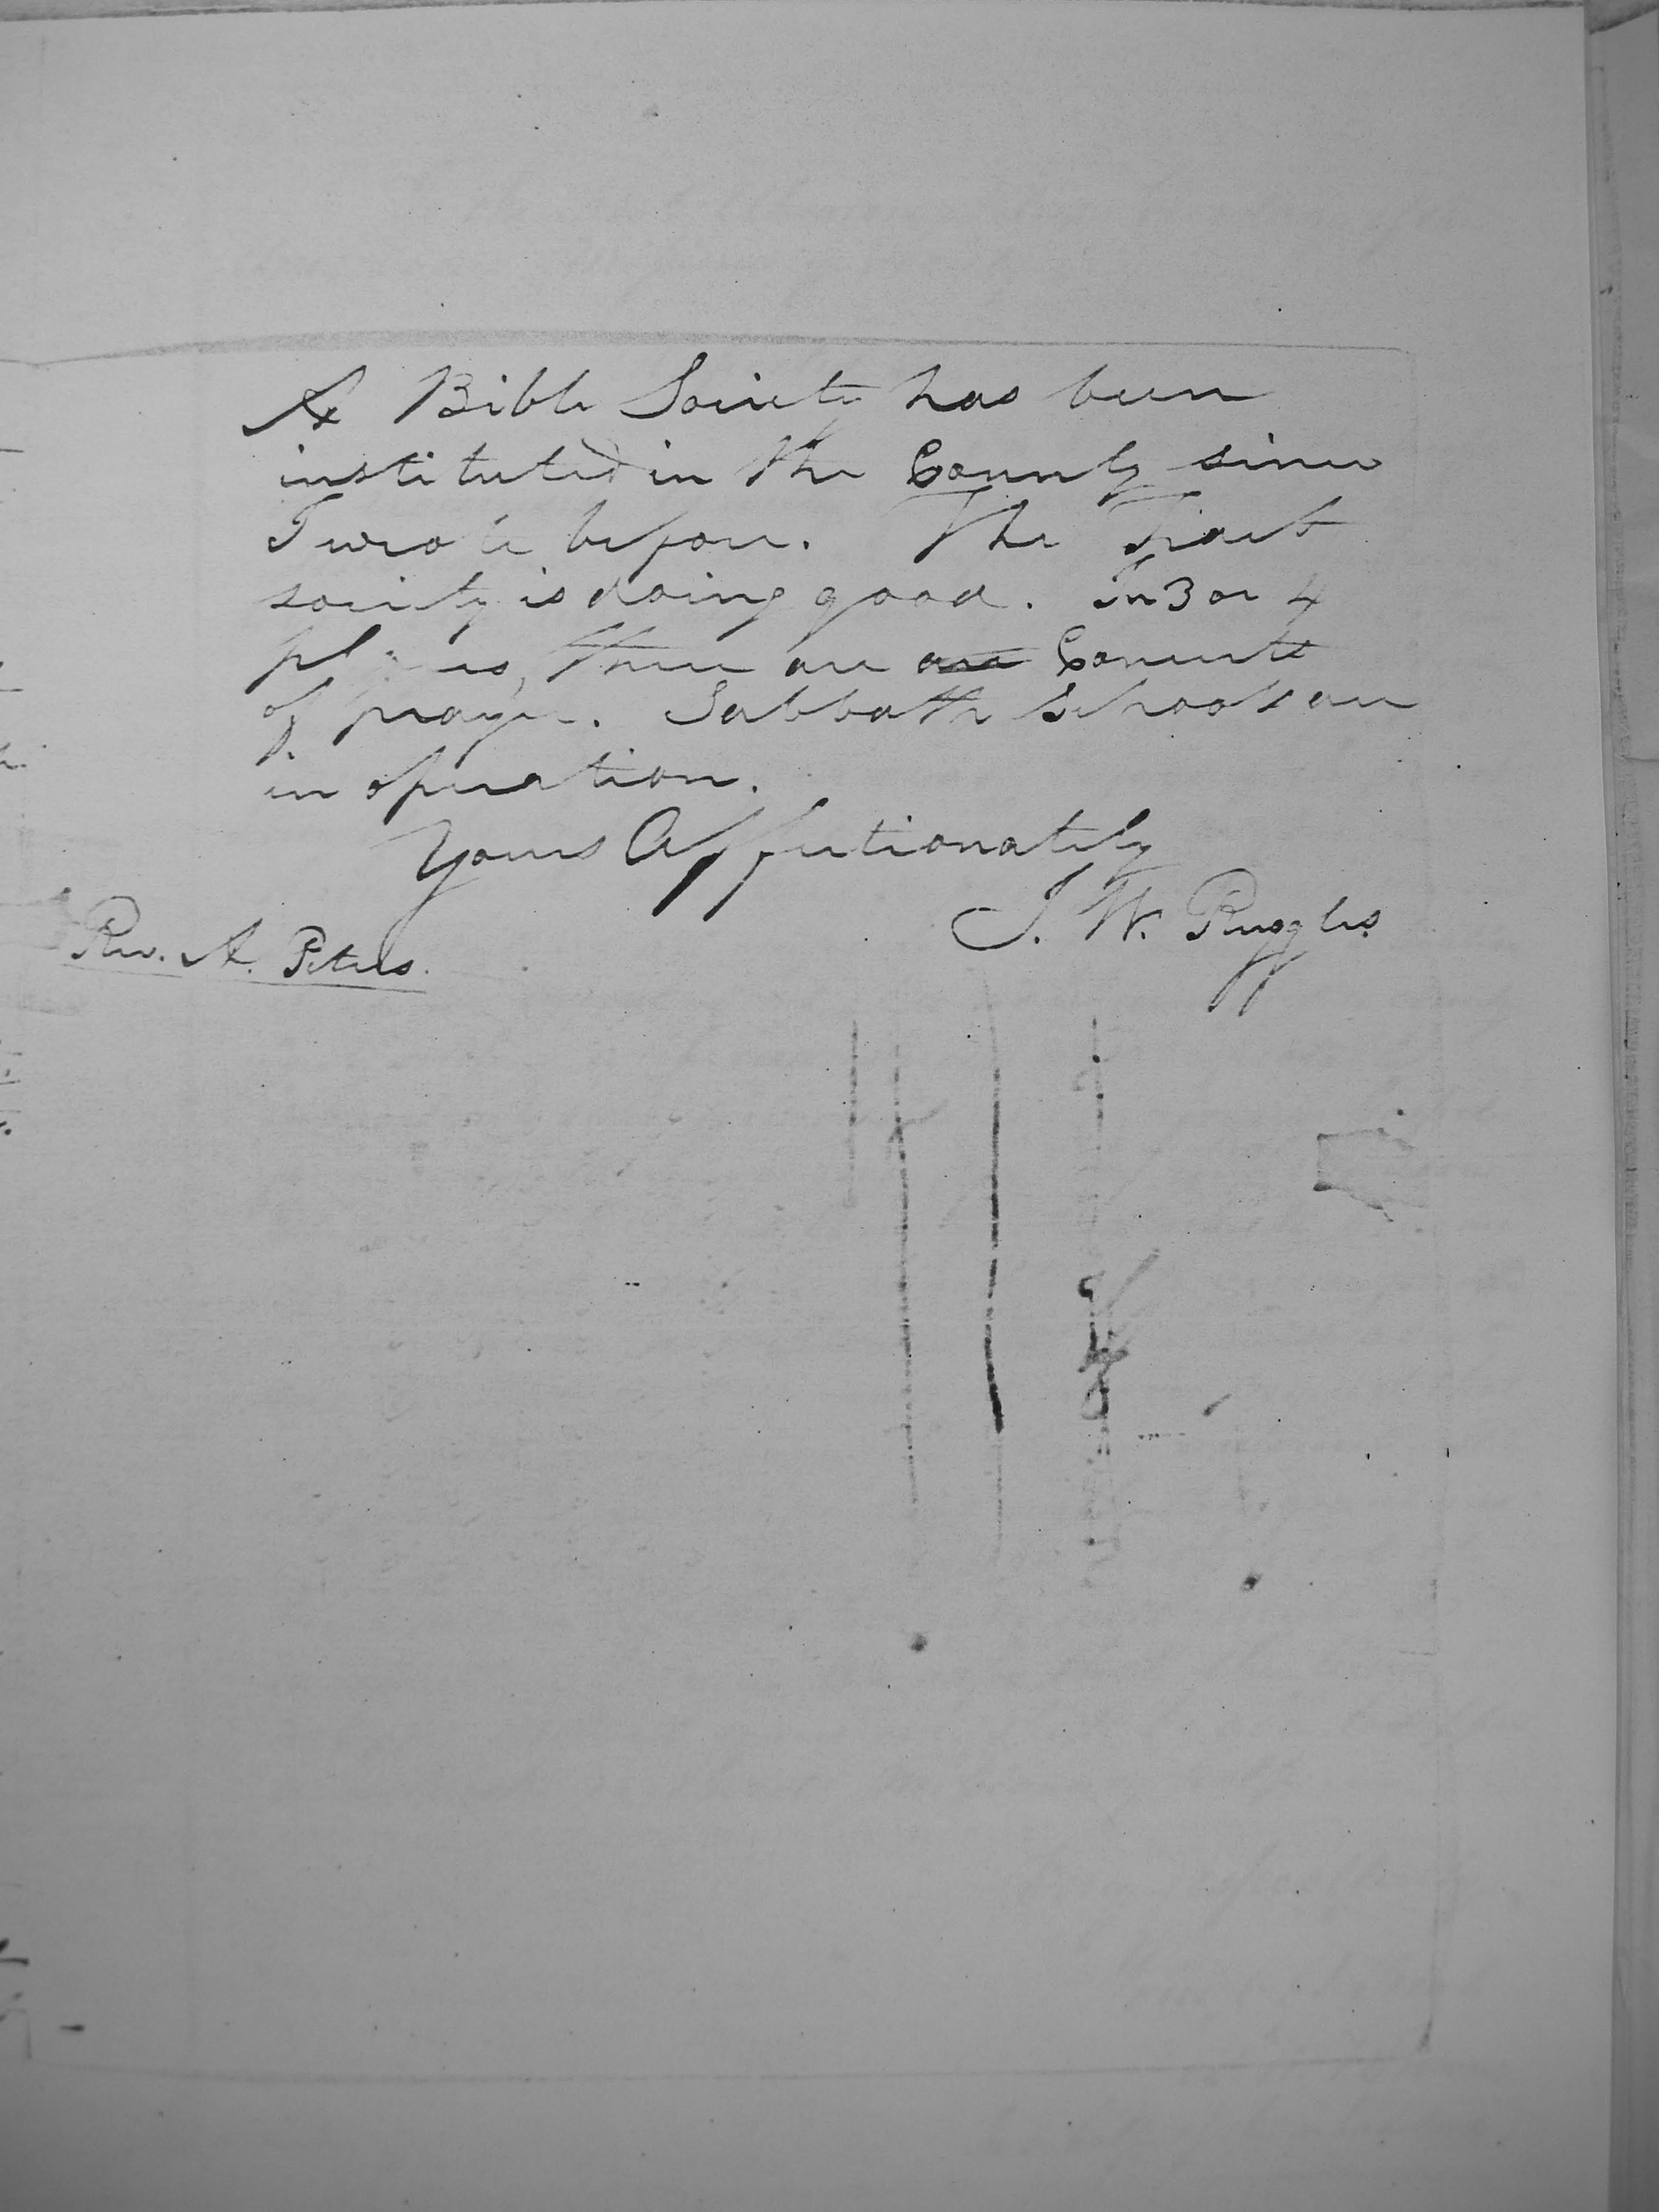 A Bible Society has been
instituted in the County since
I wrote before. The Tract
society is doing good. In 3 or 4
places, there are are Concerts
of prayer. Sabbath Schools are
in operation.
Yours Affectionately
J. W. Ruggles
Rev. A. Peters.